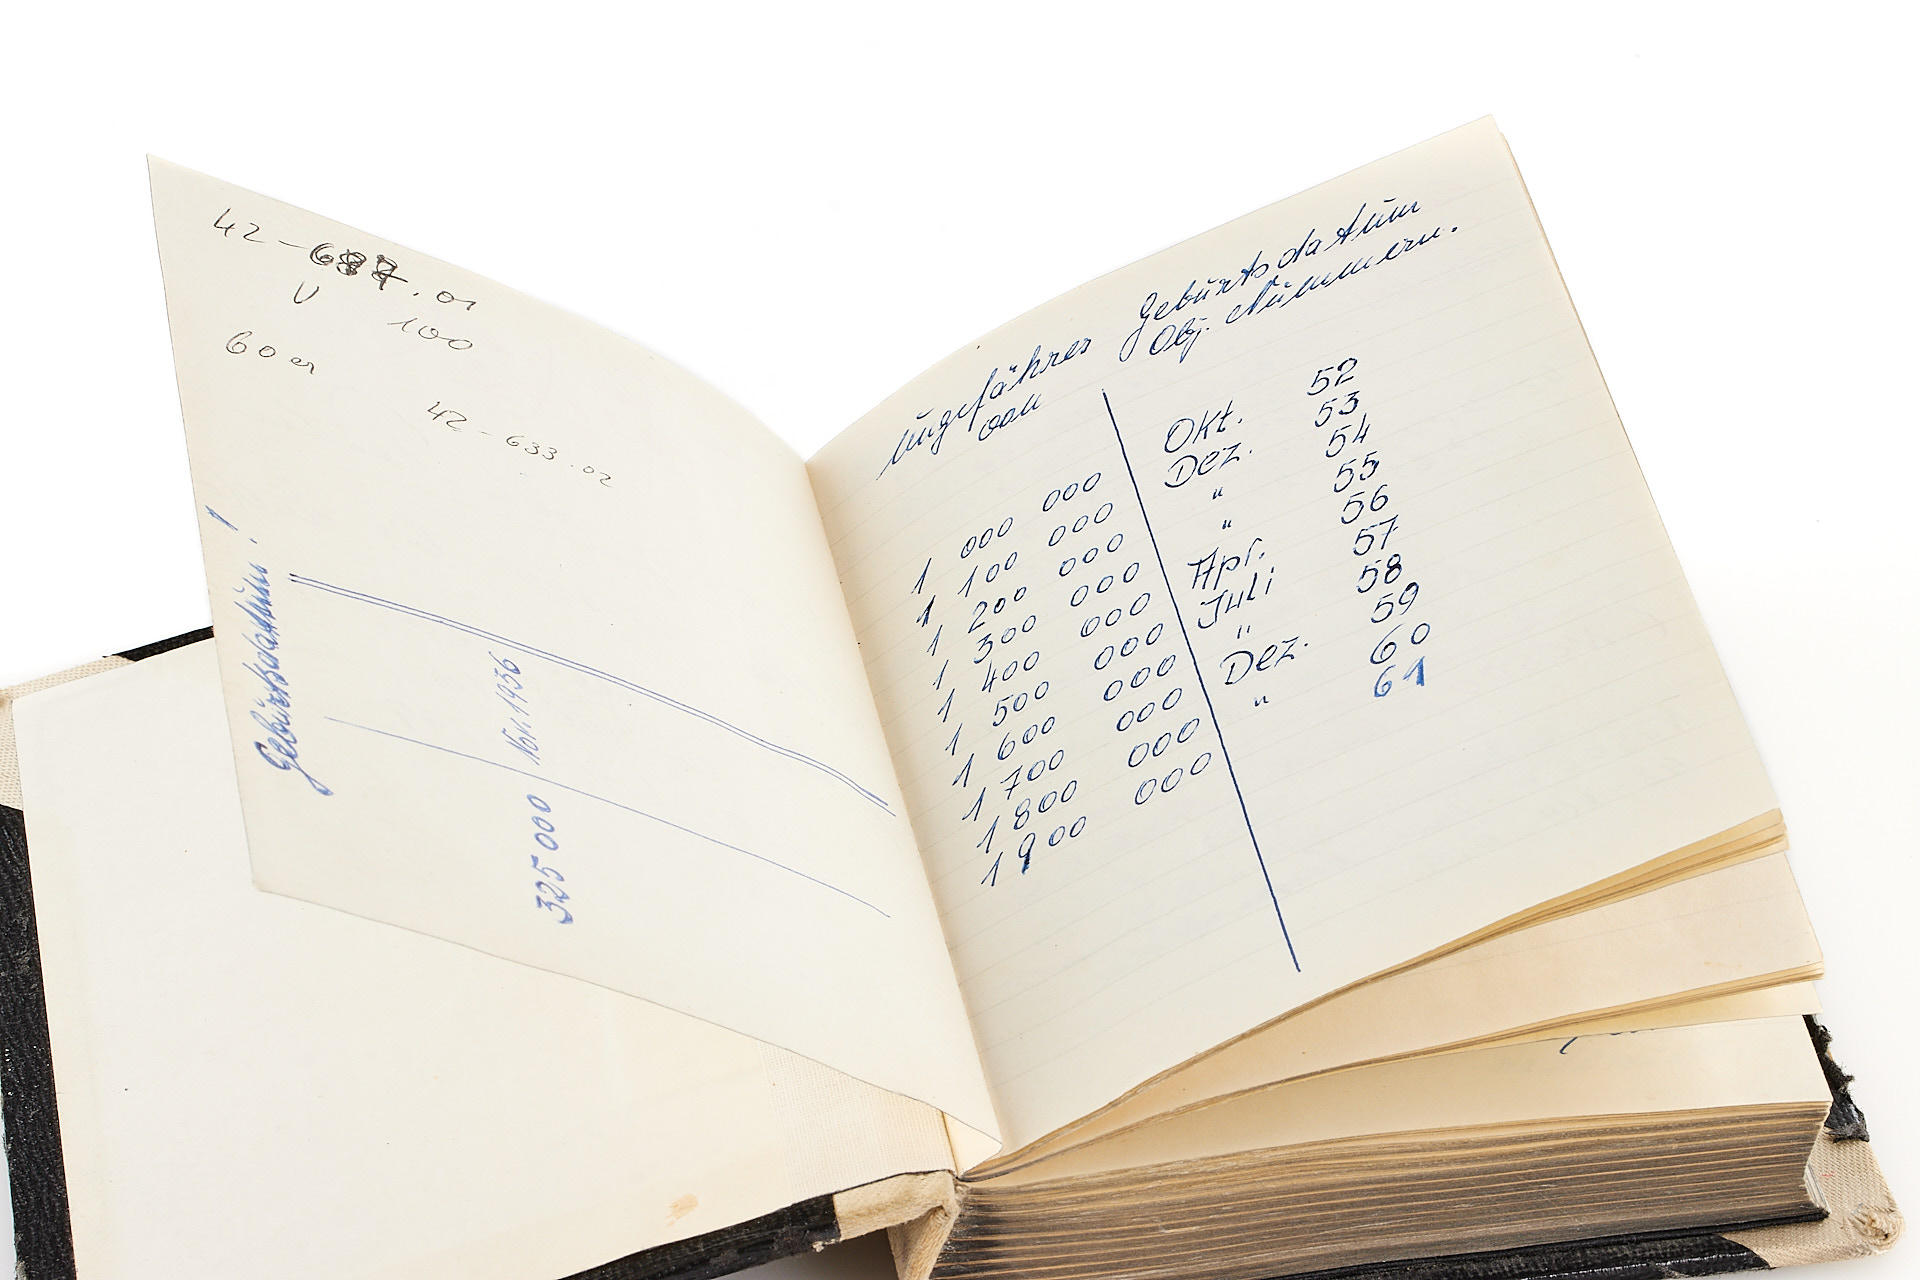 42-687.01
V
100
60er
42-633.02
Geburtsdatum!
325 000 Nov. 1956
Ungefähres Geburtsdatum
von Obj. Nummern.
1 000 000 Okt. 52
1 100 000 Dez. 53
1 200 000 " 54
1 300 000 " 55
1 400 000 Apr. 56
1 500 000 Juli 57
1 600 000 " 58
1 700 000 Dez. 59
1 800 000 " 60
1 900 000 61